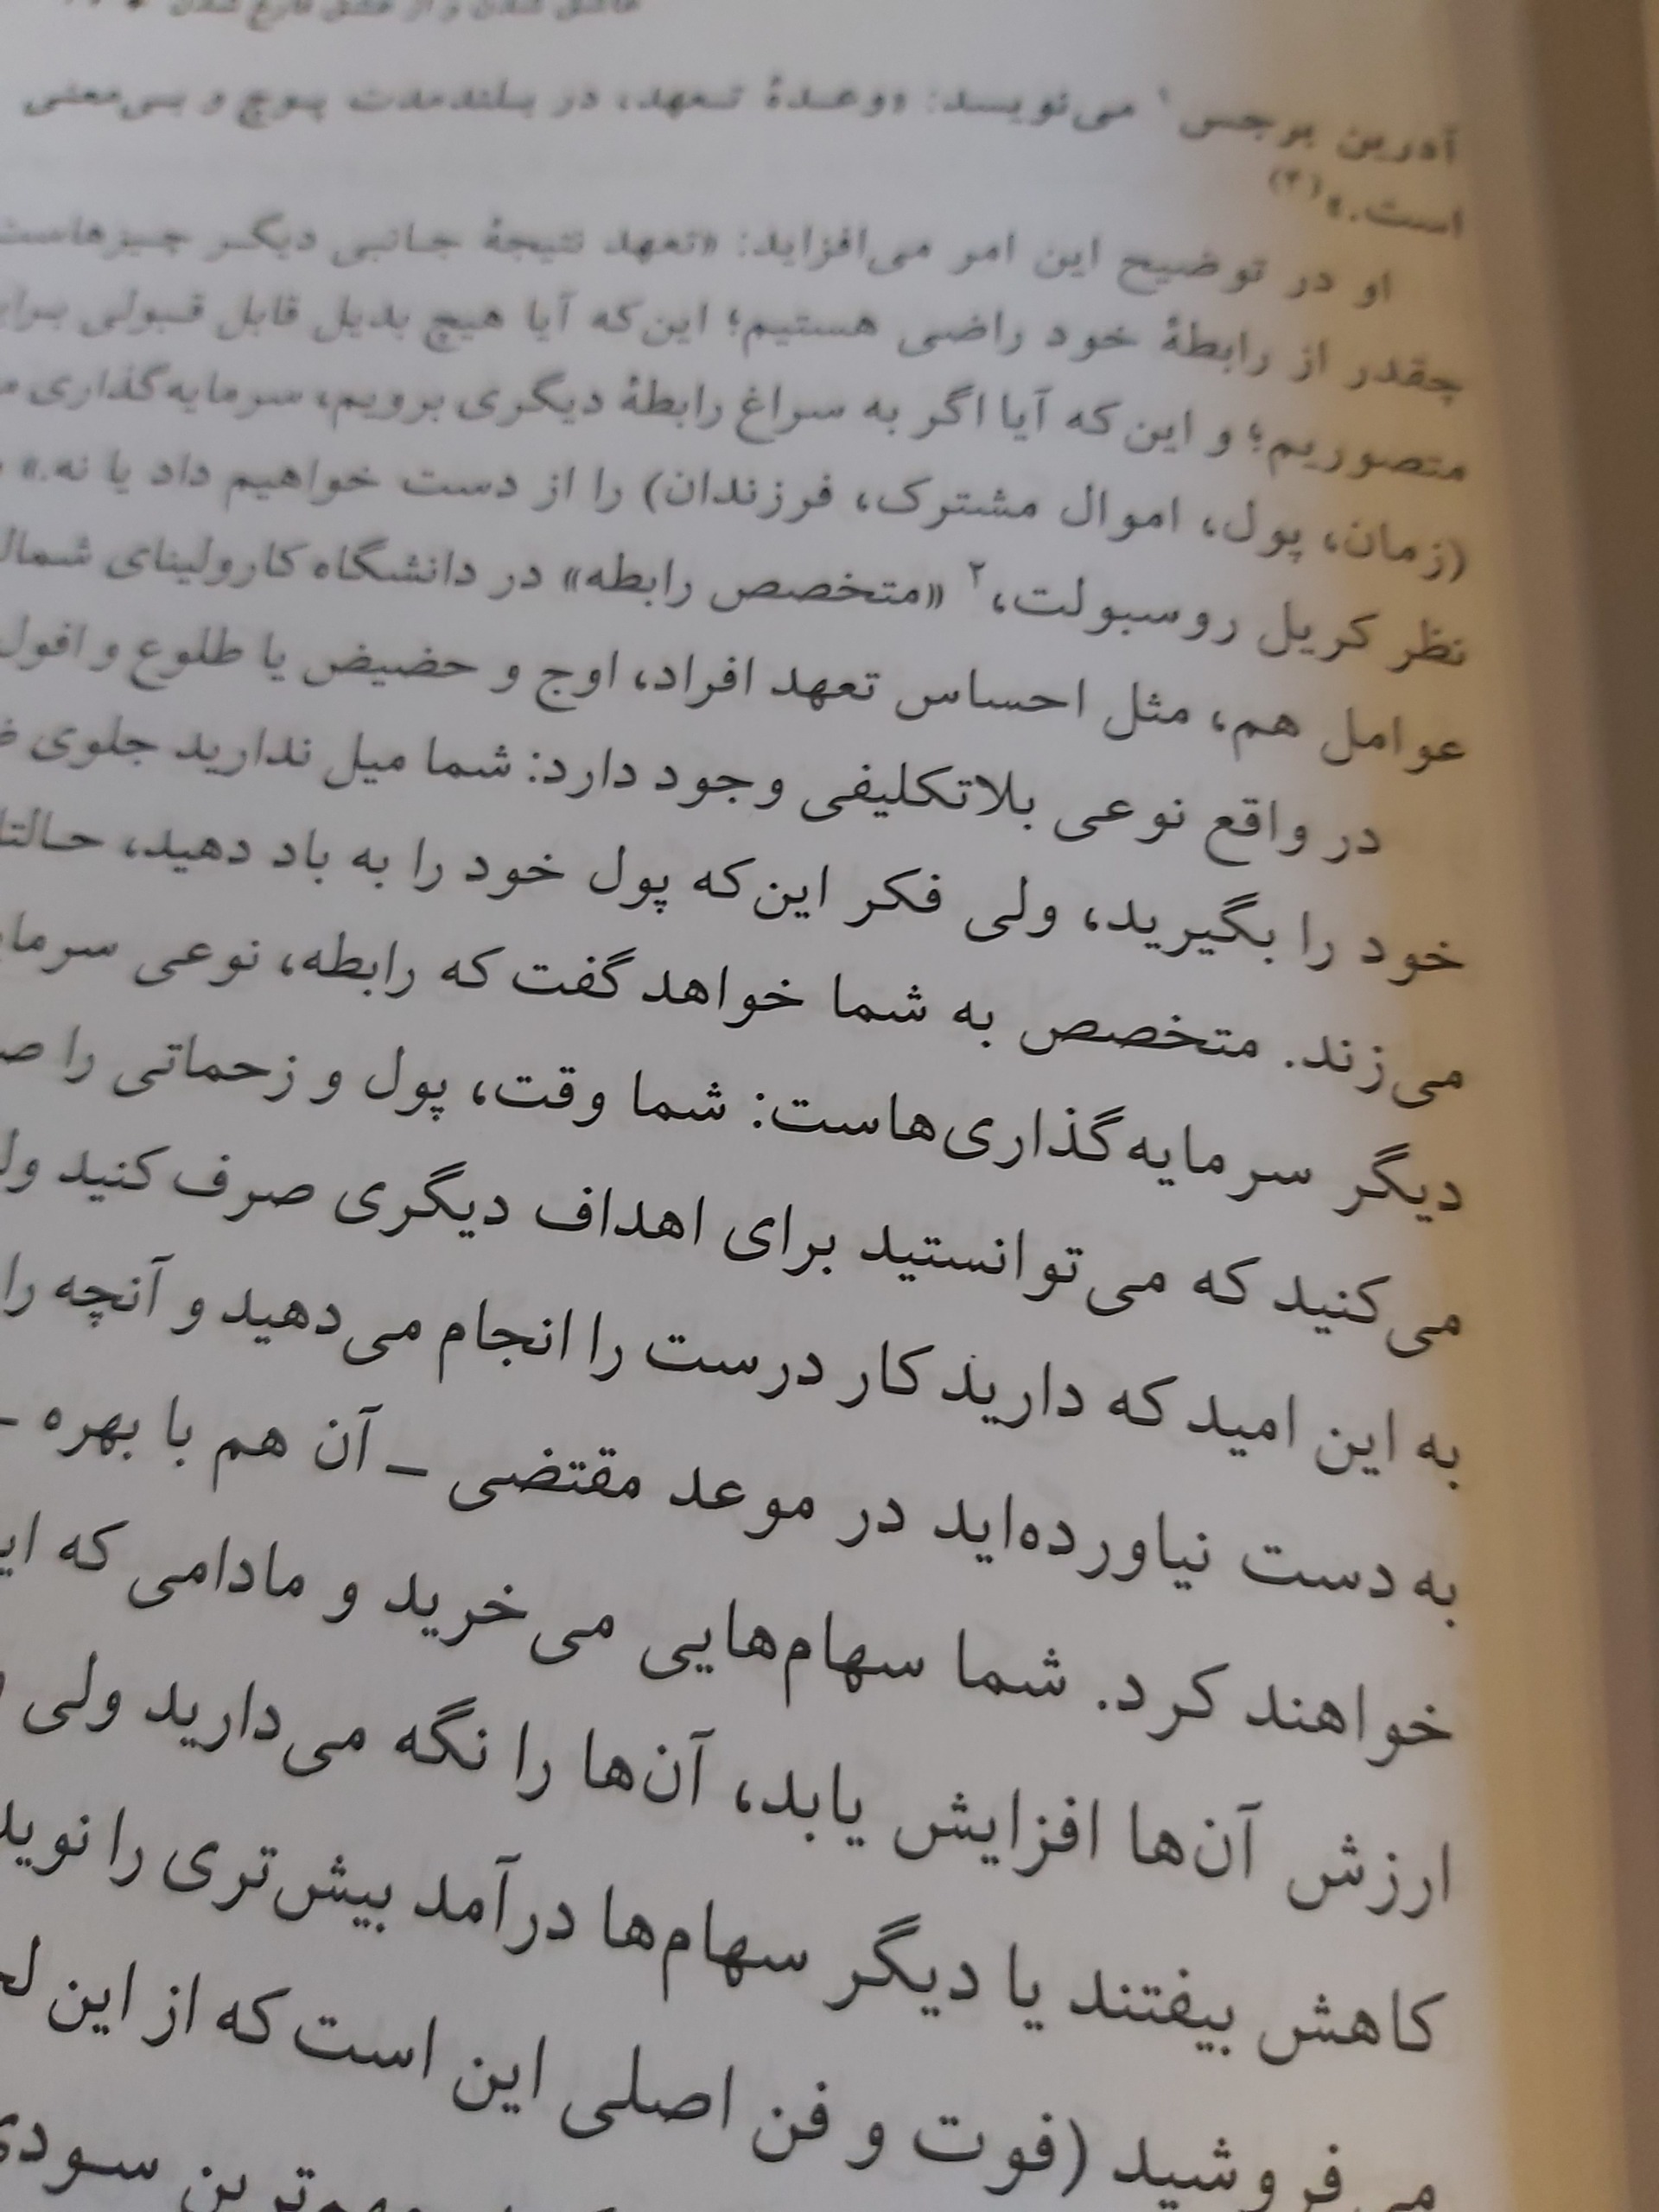 عاشق شدن و از عشق فارغ شدن
آدرین برجس۱ می‌نویسد: «وعدهٔ تعهد، در بلندمدت پوچ و بی‌معنی
است.»(۴)
او در توضیح این امر می‌افزاید: «تعهد نتیجهٔ جانبی دیگر چیزهاست
چقدر از رابطهٔ خود راضی هستیم؛ این‌که آیا هیچ بدیل قابل قبولی برای
متصوریم؛ و این‌که آیا اگر به سراغ رابطهٔ دیگری برویم، سرمایه‌گذاری
(زمان، پول، اموال مشترک، فرزندان) را از دست خواهیم داد یا نه.»
نظر کریل روسبولت،۲ «متخصص رابطه» در دانشگاه کارولینای شمال
عوامل هم، مثل احساس تعهد افراد، اوج و حضیض یا طلوع و افول
در واقع نوعی بلاتکلیفی وجود دارد: شما میل ندارید جلوی
خود را بگیرید، ولی فکر این‌که پول خود را به باد دهید، حالتا
می‌زند. متخصص به شما خواهد گفت که رابطه، نوعی سرما
دیگر سرمایه‌گذاری‌هاست: شما وقت، پول و زحماتی را ص
می‌کنید که می‌توانستید برای اهداف دیگری صرف کنید ول
به این امید که دارید کار درست را انجام می‌دهید و آنچه را
به دست نیاورده‌اید در موعد مقتضی ـ آن هم با بهره ـ
خواهند کرد. شما سهام‌هایی می‌خرید و مادامی که ای
ارزش آن‌ها افزایش یابد، آن‌ها را نگه می‌دارید ولی
کاهش بیفتند یا دیگر سهام‌ها درآمد بیش‌تری را نوید
می‌فروشید (فوت و فن اصلی این است که از این لح
سودی